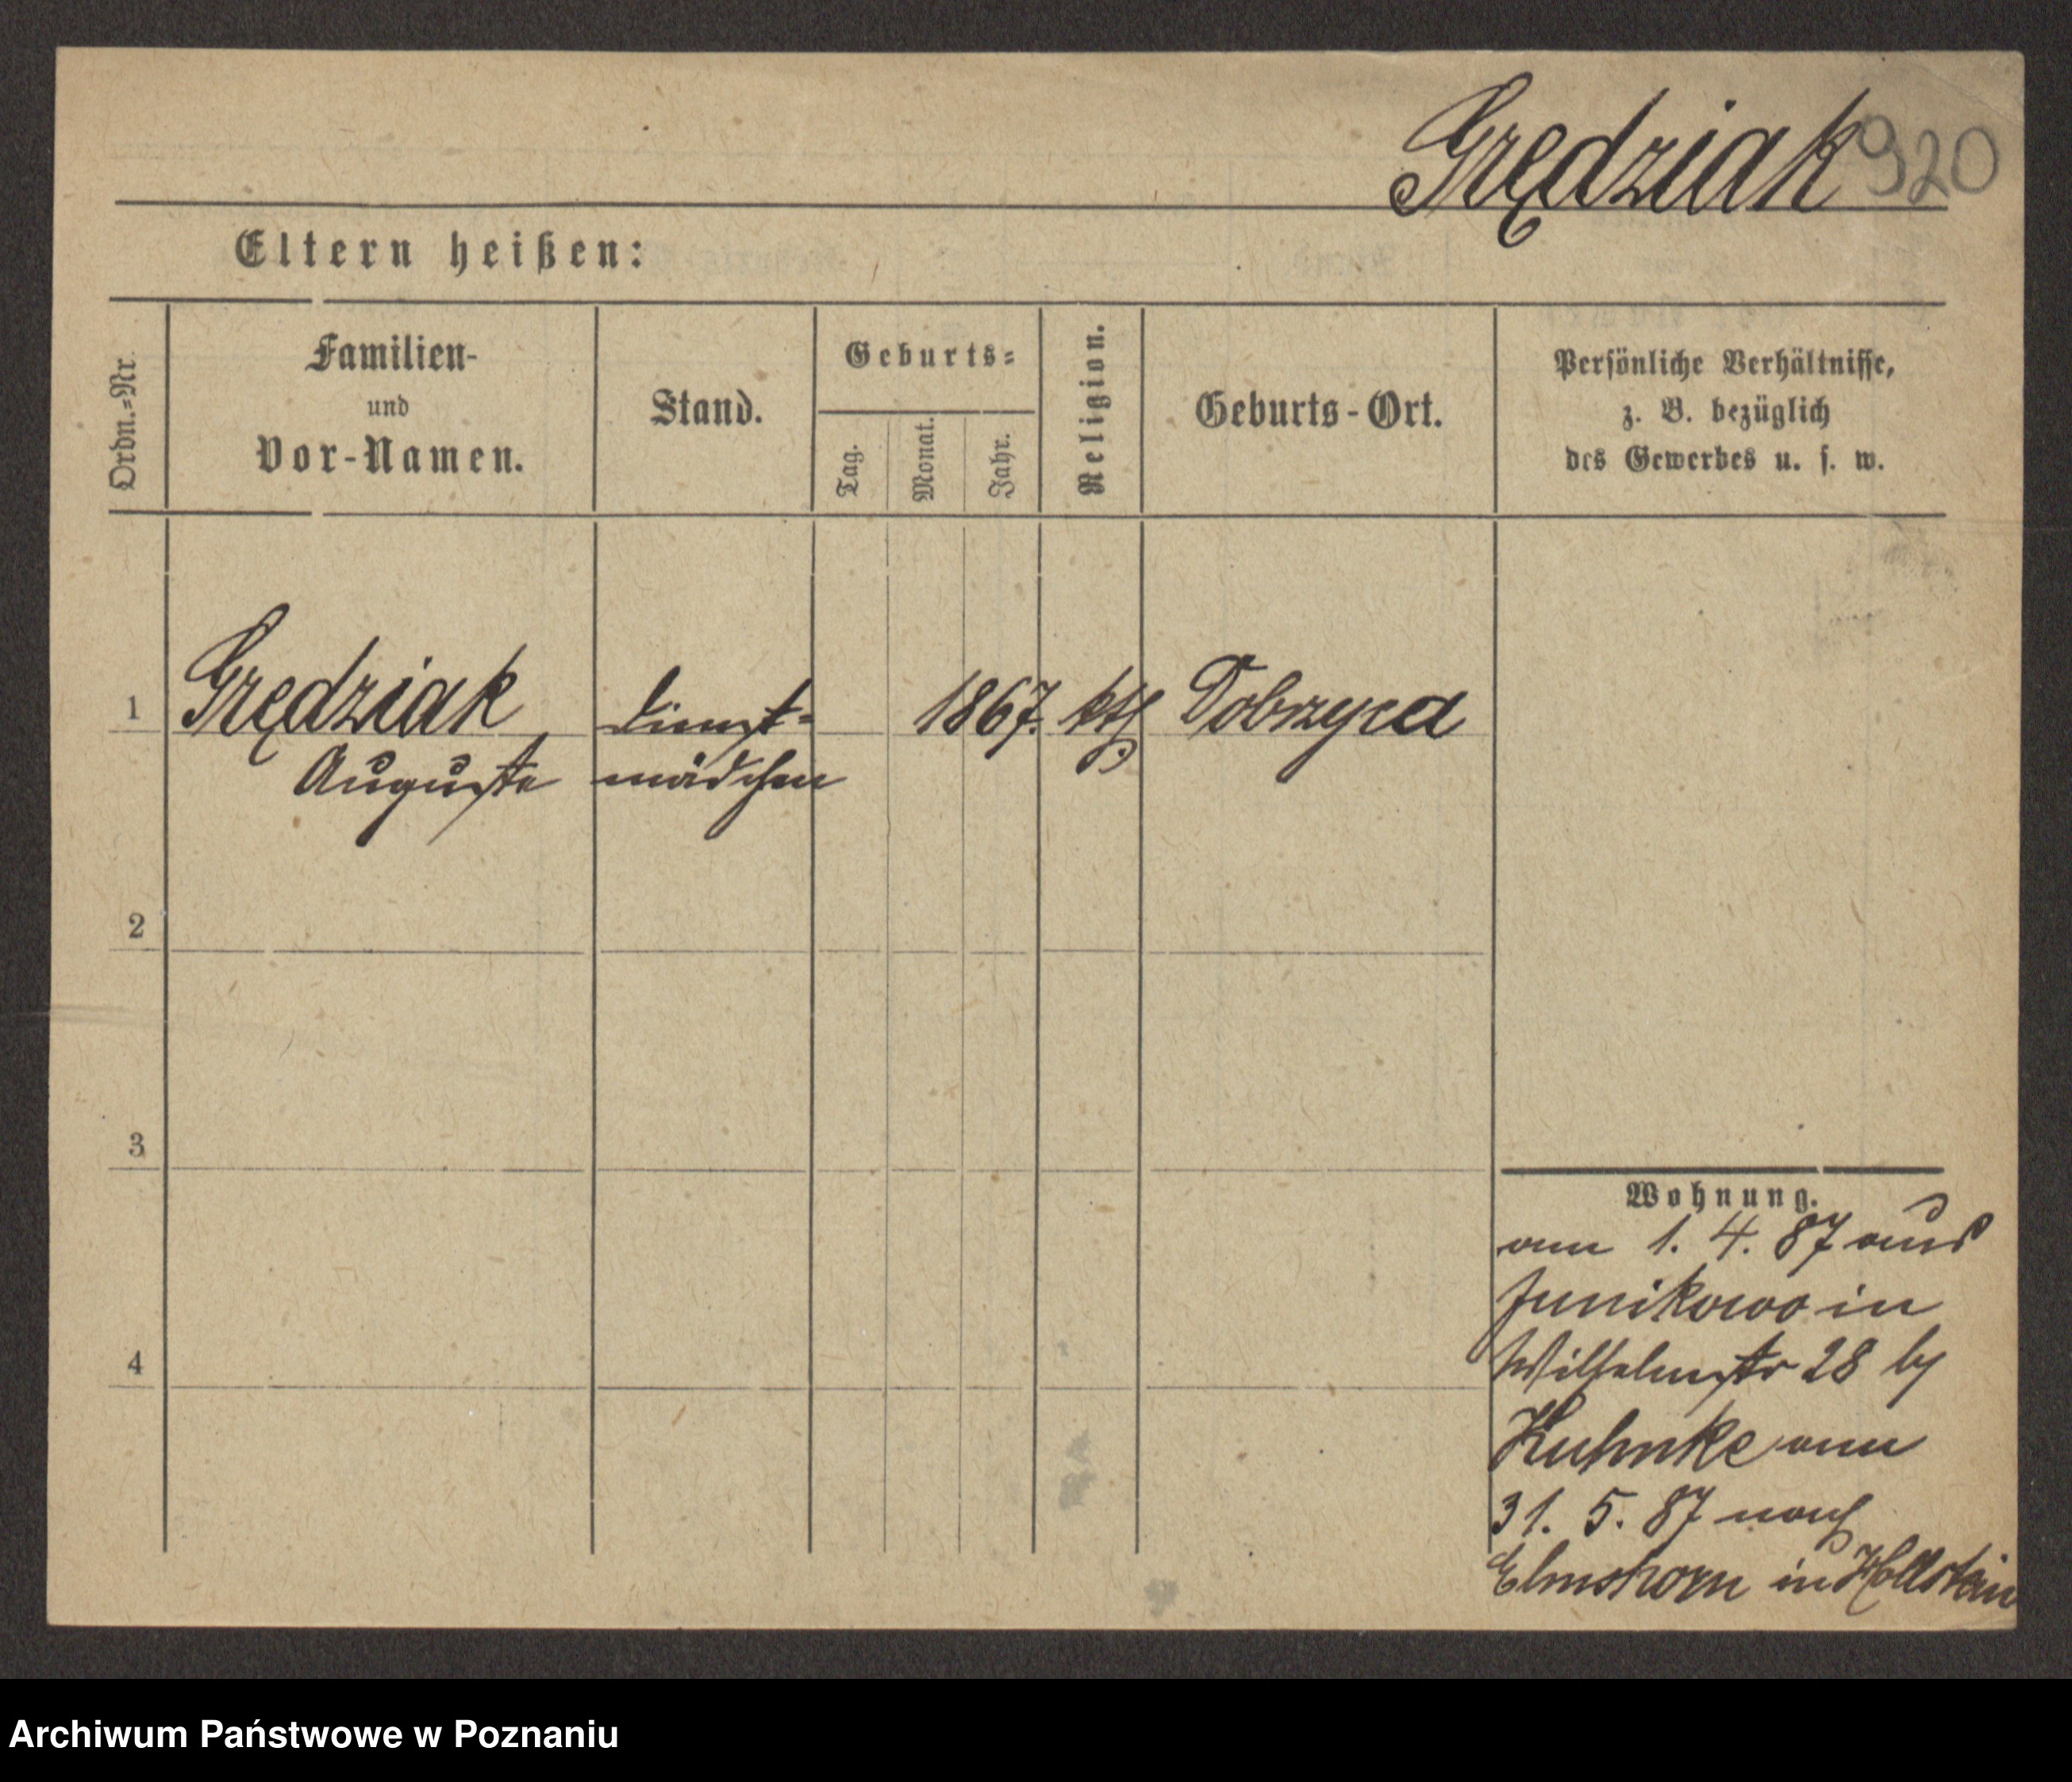 Grędziak 920
Eltern heißen:
Ordn.-Nr.
Familien-
und
Vor-Namen.
Stand.
Geburts-
Tag.
Monat.
Jahr.
Religion.
Geburts-Ort.
Persönliche Verhältnisse,
z. B. bezüglich
des Gewerbes u. s. w.
1 Grędziak Dienst- 1867. kth Dobrzyca
Auguste mädchen
2
3
4
Wohnung.
am 1. 4. 87 aus
Junikowo in
Wilhelmstr 28 by
Kuhnke am
31. 5. 87 nach
Elmshorn in Hollstein
Archiwum Państwowe w Poznaniu